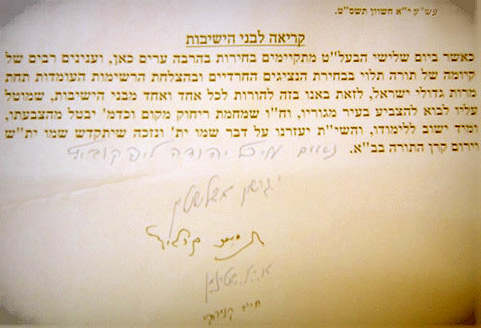 עש"ק י"א חשוון תשס"ט.
קריאה לבני הישיבות
כאשר ביום שלישי הבעל"ט מתקיימים בחירות בהרבה ערים כאן, וענינים רבים של
קיומה של תורה תלוי בבחירת הנציגים החרדיים ובהצלחת הרשימות העומדות תחת
מרות גדולי ישראל, לזאת באנו בזה להורות לכל אחד ואחד מבני הישיבות, שמוטל
עליו לבוא להצביע בעיר מגוריו, וח"ו שמחמת ריחוק מקום וכדמ' יבטל מהצבעתו,
ומיד ישוב ללימודו, והשי"ת יעזרנו על דבר שמו ית' ונזכה שיתקדש שמו ית"ש
וירום קרן התורה בב"א.
מיכל יהודה ליפקוביץ
חיים קניבסקי